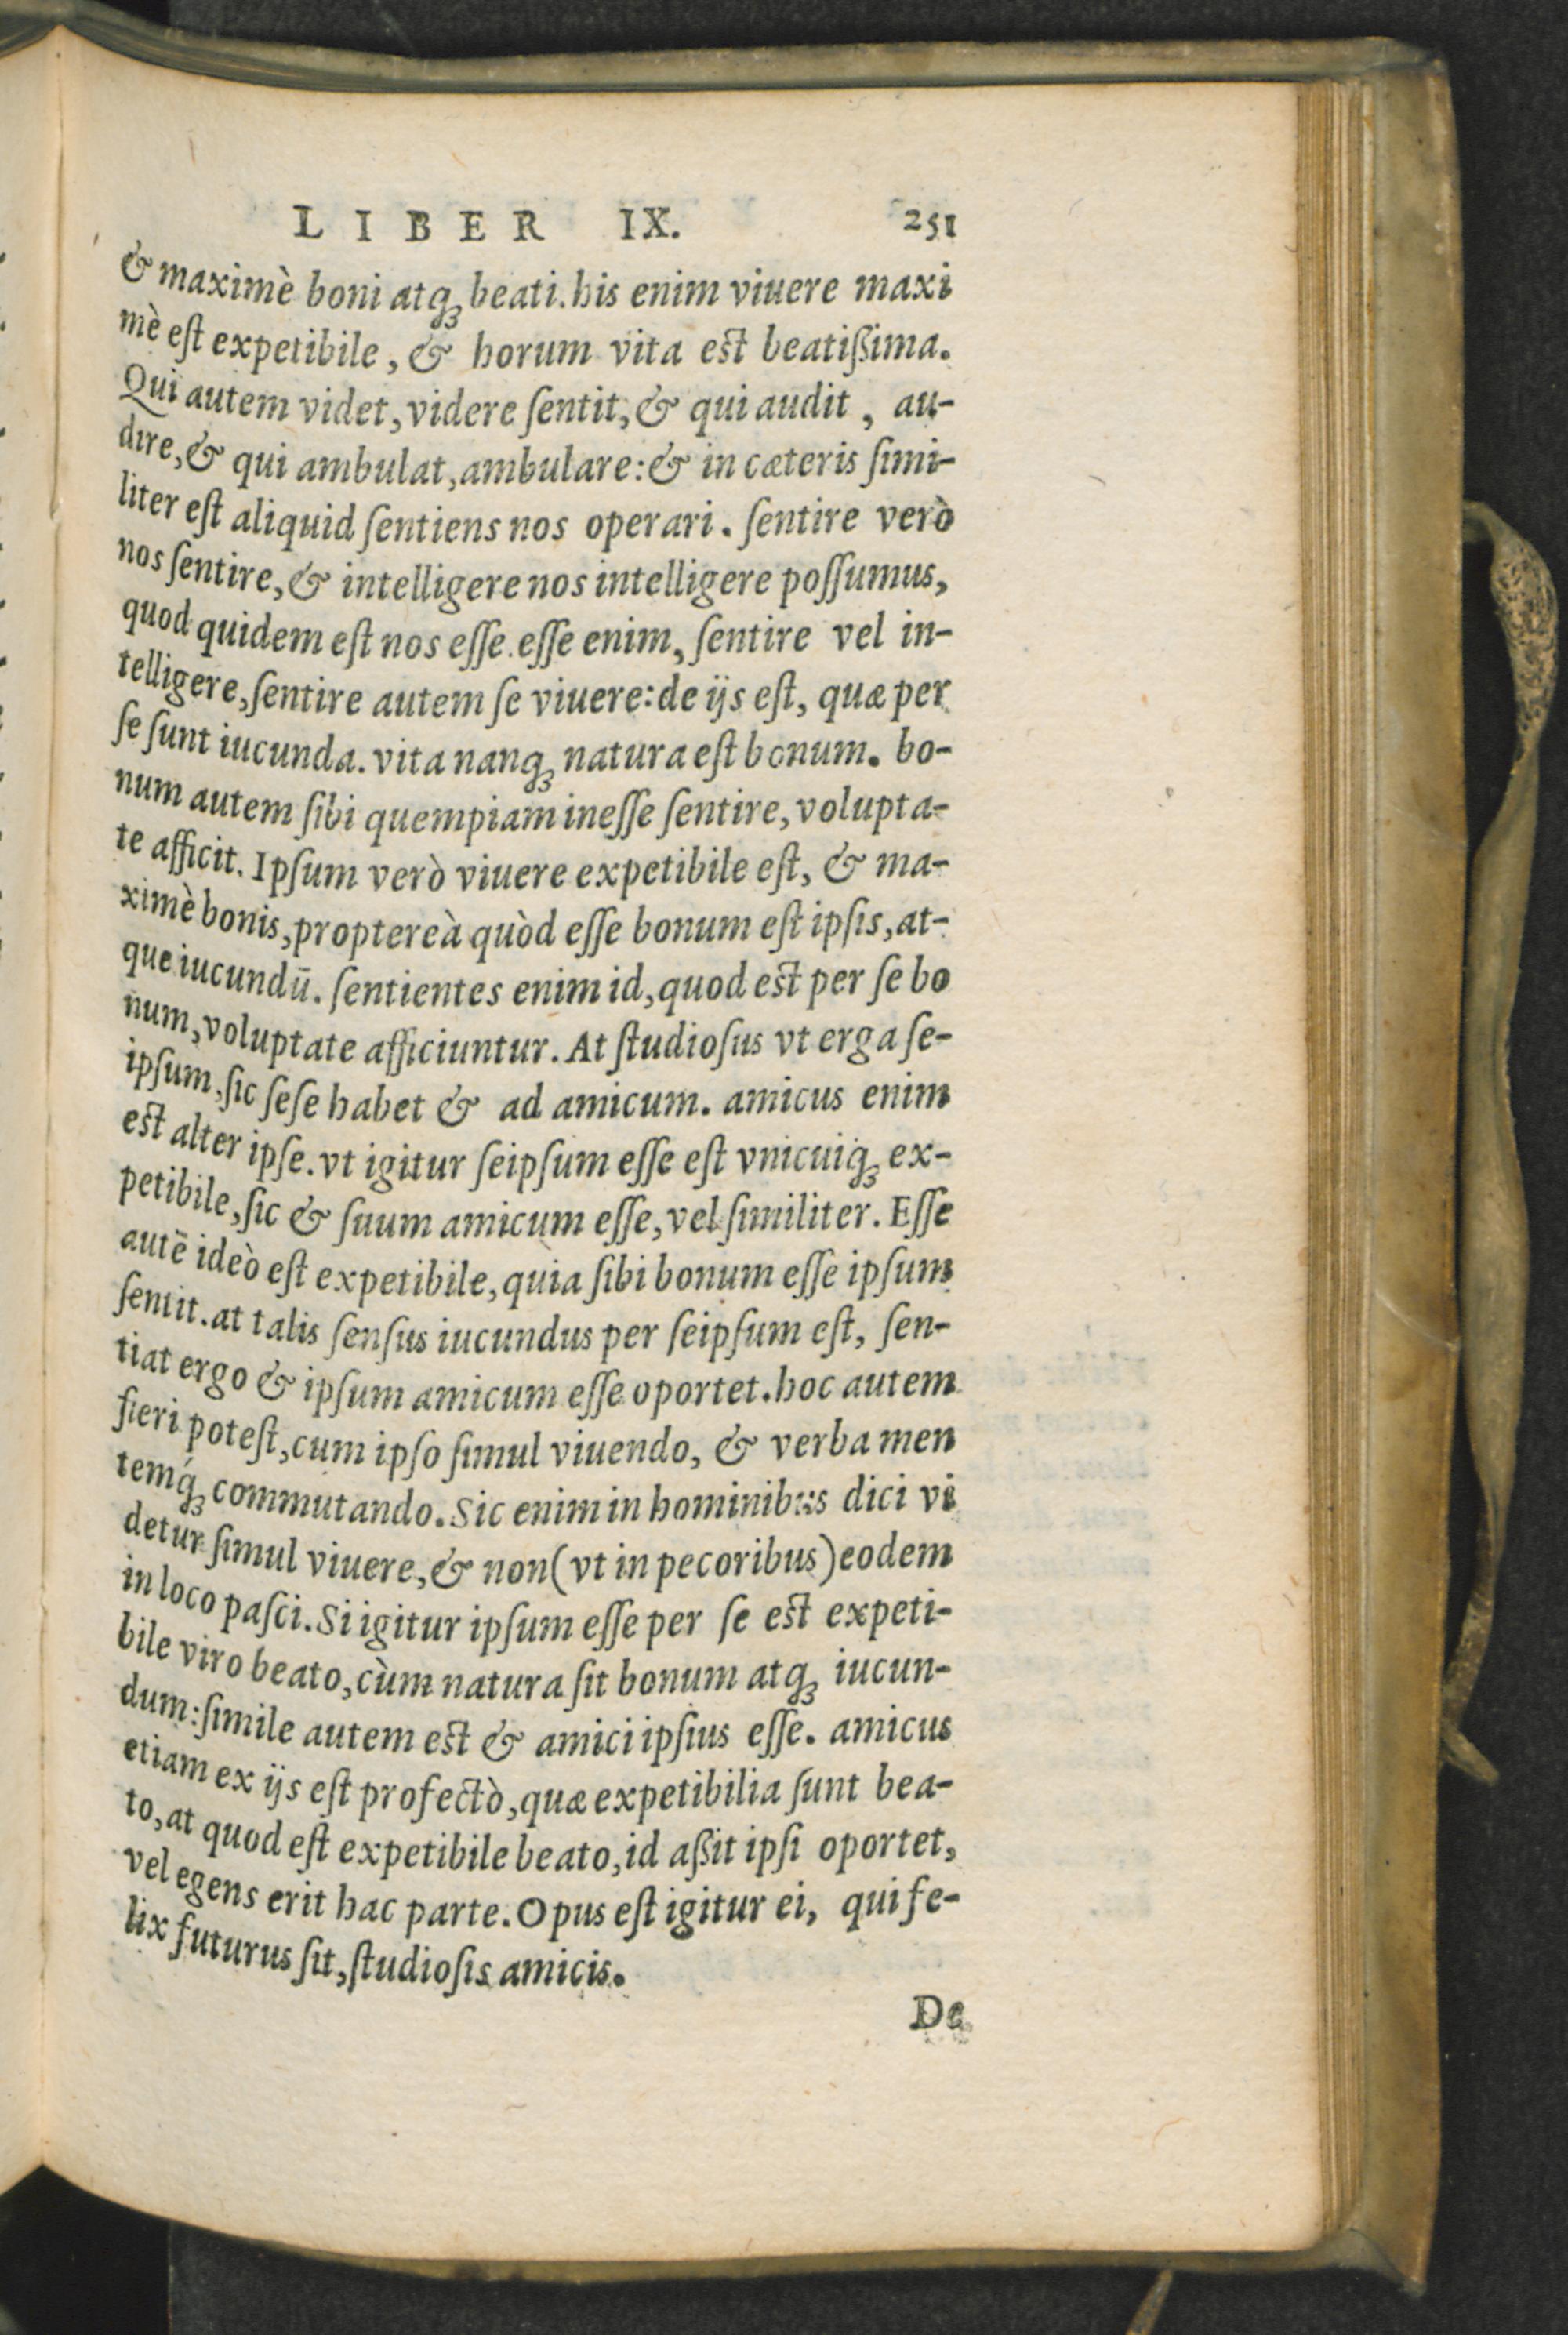 LIBER IX. 251
& maximè boni atq́ꝫ beati. his enim viuere maxi
mè eſt expetibile, & horum vita eſt beatißima.
Qui autem videt, videre ſentit, & qui audit, au-
dire, & qui ambulat, ambulare: & in cæteris ſimi-
liter eſt aliquid ſentiens nos operari. ſentire verò
nos ſentire, & intelligere nos intelligere poſſumus,
quod quidem eſt nos eſſe. eſſe enim, ſentire vel in-
telligere, ſentire autem ſe viuere: de ijs eſt, quæ per
ſe ſunt iucunda. vita nanqꝫ natura eſt bonum. bo-
num autem ſibi quempiam ineſſe ſentire, volupta-
te afficit. Ipſum verò viuere expetibile eſt, & ma-
ximè bonis, proptereà quòd eſſe bonum eſt ipſis, at-
que iucundū. ſentientes enim id, quod eſt per ſe bo
num, voluptate afficiuntur. At ſtudioſus vt erga ſe-
ipſum, ſic ſeſe habet & ad amicum. amicus enim
eſt alter ipſe. vt igitur ſeipſum eſſe eſt vnicuiqꝫ ex-
petibile, ſic & ſuum amicum eſſe, vel ſimiliter. Eſſe
autē ideò eſt expetibile, quia ſibi bonum eſſe ipſum
ſentit. at talis ſenſus iucundus per ſeipſum eſt, ſen-
tiat ergo & ipſum amicum eſſe oportet. hoc autem
fieri poteſt, cum ipſo ſimul viuendo, & verba men
temq́ꝫ commutando. Sic enim in hominibus dici vi
detur ſimul viuere, & non (vt in pecoribus) eodem
in loco paſci. Si igitur ipſum eſſe per ſe eſt expeti-
bile viro beato, cùm natura ſit bonum atqꝫ iucun-
dum: ſimile autem eſt & amici ipſius eſſe. amicus
etiam ex ijs eſt profectò, quæ expetibilia ſunt bea-
to, at quod eſt expetibile beato, id aßit ipſi oportet,
vel egens erit hac parte. Opus eſt igitur ei, qui fe-
lix futurus ſit, ſtudioſis amicis.
De